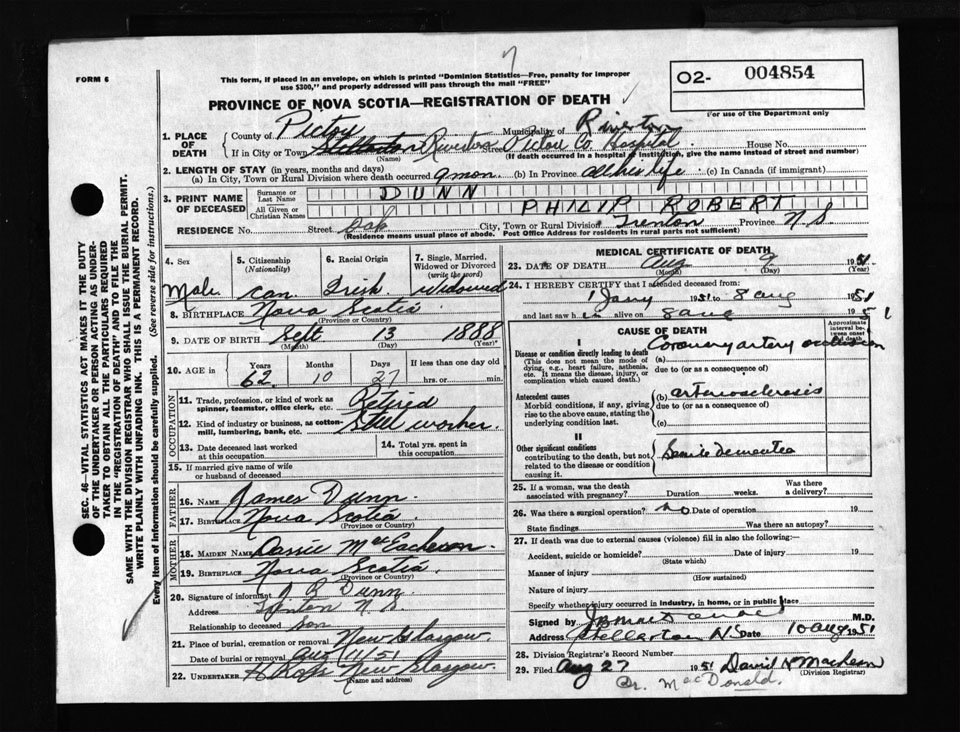 7
FORM 6
This form, if placed in an envelope, on which is printed "Dominion Statistics—Free, penalty for improper
use $300," and properly addressed will pass through the mail "FREE"
O2- 004854
For use of the Department only
PROVINCE OF NOVA SCOTIA—REGISTRATION OF DEATH
SEC. 46—VITAL STATISTICS ACT MAKES IT THE DUTY
OF THE UNDERTAKER OR PERSON ACTING AS UNDER-
TAKER TO OBTAIN ALL THE PARTICULARS REQUIRED
IN THE "REGISTRATION OF DEATH" AND TO FILE THE
SAME WITH THE DIVISION REGISTRAR WHO SHALL ISSUE THE BURIAL PERMIT.
WRITE PLAINLY WITH UNFADING INK. THIS IS A PERMANENT RECORD.
Every item of information should be carefully supplied. (See reverse side for instructions.)
1. PLACE OF DEATH
County of Pictou Municipality of Riverton
If in City or Town Stellarton Riverton Street Pictou Co. Hospital House No.
(Name) (If death occurred in a hospital or institution, give the name instead of street and number)
2. LENGTH OF STAY (in years, months and days)
(a) In City, Town or Rural Division where death occurred 9 mon. (b) In Province all his life (c) In Canada (if immigrant)
3. PRINT NAME OF DECEASED
Surname or Last Name DUNN
All Given or Christian Names PHILIP ROBERT
RESIDENCE No. Street City, Town or Rural Division Trenton Province N.S.
(Residence means usual place of abode. Post Office Address for residents in rural parts not sufficient)
4. Sex Male
5. Citizenship (Nationality) Can.
6. Racial Origin Irish
7. Single, Married, Widowed or Divorced (write the word) Widowed
8. BIRTHPLACE Nova Scotia
(Province or Country)
9. DATE OF BIRTH Sept 13 1888
(Month) (Day) (Year)
10. AGE in Years 62 Months 10 Days 27 If less than one day old hrs. or min.
OCCUPATION
11. Trade, profession or kind of work as spinner, teamster, office clerk, etc. Retired
12. Kind of industry or business, as cotton-mill, lumbering, bank, etc. Steel worker.
13. Date deceased last worked at this occupation
14. Total yrs. spent in this occupation
15. If married give name of wife or husband of deceased
FATHER
16. NAME James Dunn.
17. BIRTHPLACE Nova Scotia
(Province or Country)
MOTHER
18. MAIDEN NAME MacEachern.
19. BIRTHPLACE Nova Scotia
(Province or Country)
20. Signature of informant Dunn
Address Trenton N.S.
Relationship to deceased Son
21. Place of burial, cremation or removal New Glasgow.
Date of burial or removal Aug 11/51
22. UNDERTAKER New Glasgow.
(Name and address)
MEDICAL CERTIFICATE OF DEATH
23. DATE OF DEATH Aug 9 1951
(Month) (Day) (Year)
24. I HEREBY CERTIFY that I attended deceased from:
1 Jany 1951 to 8 aug 1951
and last saw h im alive on 8 aug 1951
CAUSE OF DEATH
Approximate interval between onset and death
I
Disease or condition directly leading to death
(This does not mean the mode of dying, e.g., heart failure, asthenia, etc. It means the disease, injury, or complication which caused death.)
(a) Coronary artery occlusion
due to (or as a consequence of)
Antecedent causes
Morbid conditions, if any, giving rise to the above cause, stating the underlying condition last.
(b) arteriosclerosis
due to (or as a consequence of)
(c)
II
Other significant conditions
contributing to the death, but not related to the disease or condition causing it.
Senile Dementia
25. If a woman, was the death associated with pregnancy? Duration weeks. Was there a delivery?
26. Was there a surgical operation? no Date of operation 19
State findings Was there an autopsy?
27. If death was due to external causes (violence) fill in also the following:
Accident, suicide or homicide? Date of injury 19
(State which)
Manner of injury
(How sustained)
Nature of injury
Specify whether injury occurred in industry, in home, or in public place
Signed by M.D.
Address Stellarton NS Date 10 aug 1951
28. Division Registrar's Record Number
29. Filed Aug 27 1951 David
(Division Registrar)
Dr. MacDonald.